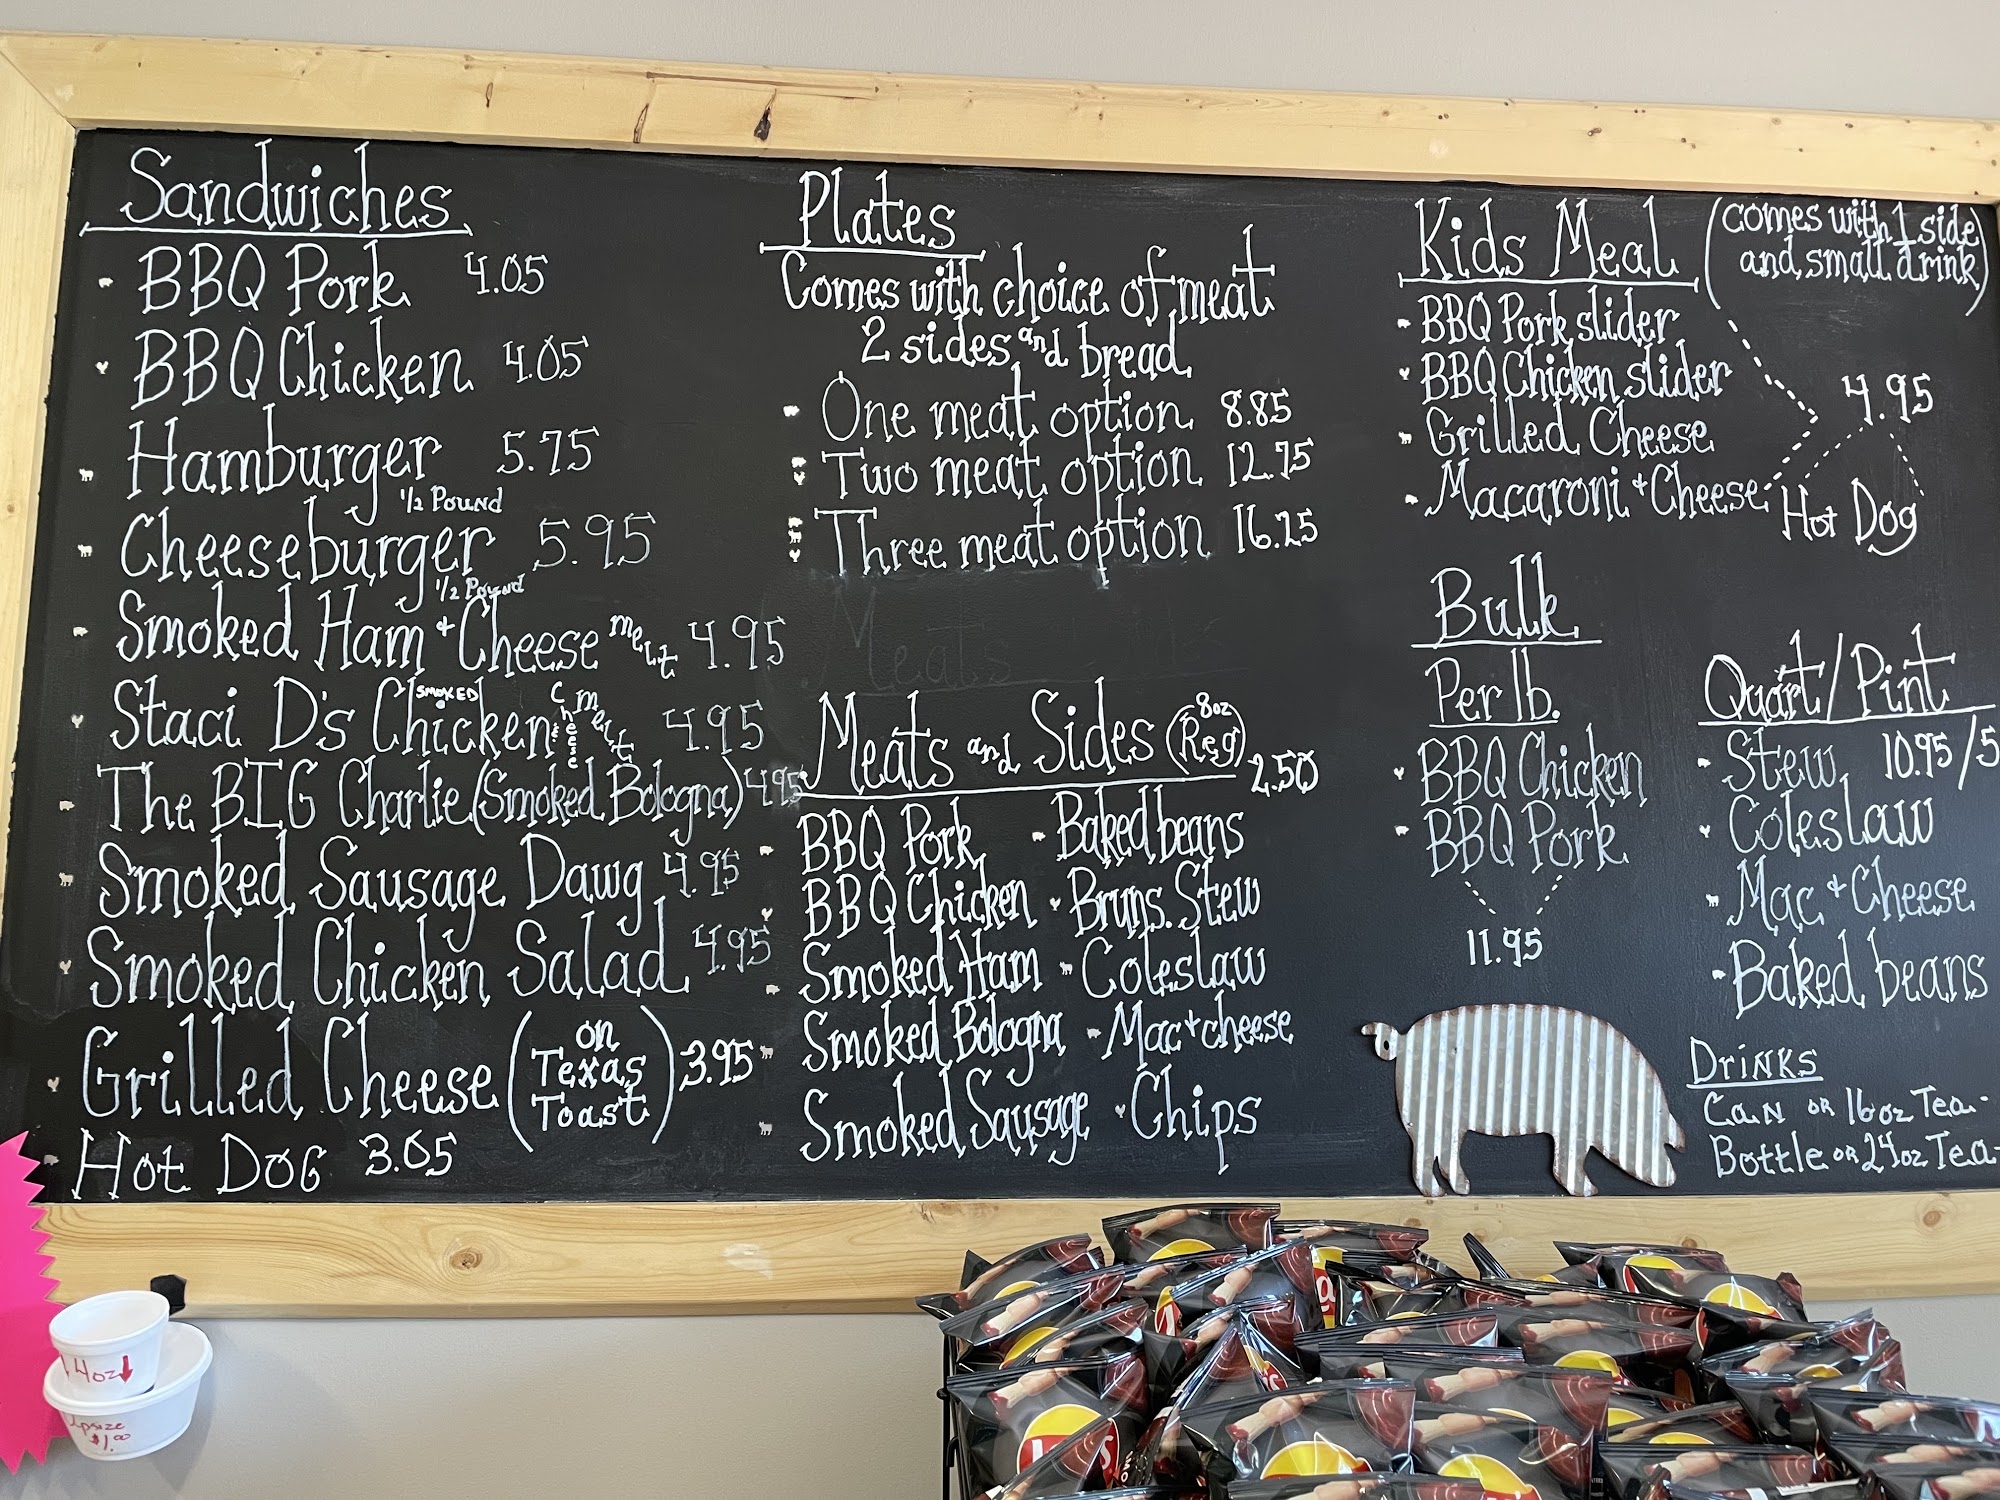 Sandwiches
BBQ Pork 4.05
BBQ Chicken 4.05
Hamburger 5.75
1/2 Pound
Cheeseburger 5.95
1/2 Pound
Smoked Ham + Cheese melt 4.95
Staci D's Smoked Chicken & cheese melt 4.95
The BIG Charlie (Smoked Bologna) 4.95
Smoked Sausage Dawg 4.95
Smoked Chicken Salad 4.95
Grilled Cheese (on Texas Toast) 3.95
Hot Dog 3.05
Plates
Comes with choice of meat
2 sides and bread
One meat option 8.85
Two meat option 12.75
Three meat option 16.25
Meats
Meats and Sides (8oz Reg) 2.50
BBQ Pork
BBQ Chicken
Smoked Ham
Smoked Bologna
Smoked Sausage
Baked beans
Bruns. Stew
Coleslaw
Mac + cheese
Chips
Kids Meal (comes with 1 side
and small drink)
BBQ Pork slider
BBQ Chicken slider
Grilled Cheese
Macaroni + Cheese
4.95
Hot Dog
Bulk
Per lb.
BBQ Chicken
BBQ Pork
11.95
Quart/Pint
Stew 10.95/5
Coleslaw
Mac + Cheese
Baked beans
Drinks
Can or 16oz Tea-
Bottle or 24oz Tea-
4oz
upsize
$1.00